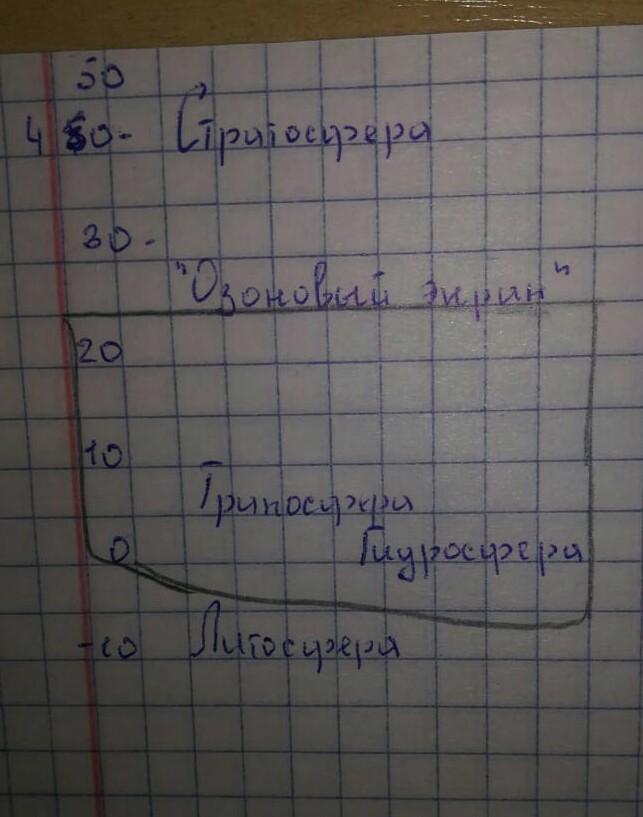 50
40- Стратосфера
30-
"Озоновый экран"
20
10
Трипосфера
0 Гидросфера
-10 Литосфера